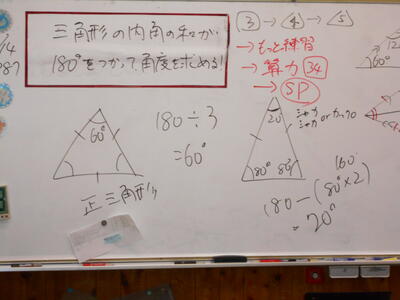 三角形の内角の和が
180°をつかって角度を求める!
3 → 4 → 5
→ もっと練習
→ 算力 34
→ SP
60°
正三角形
180÷3
=60°
20°
80° 80°
or
160
180-(80°×2)
=20°
60°